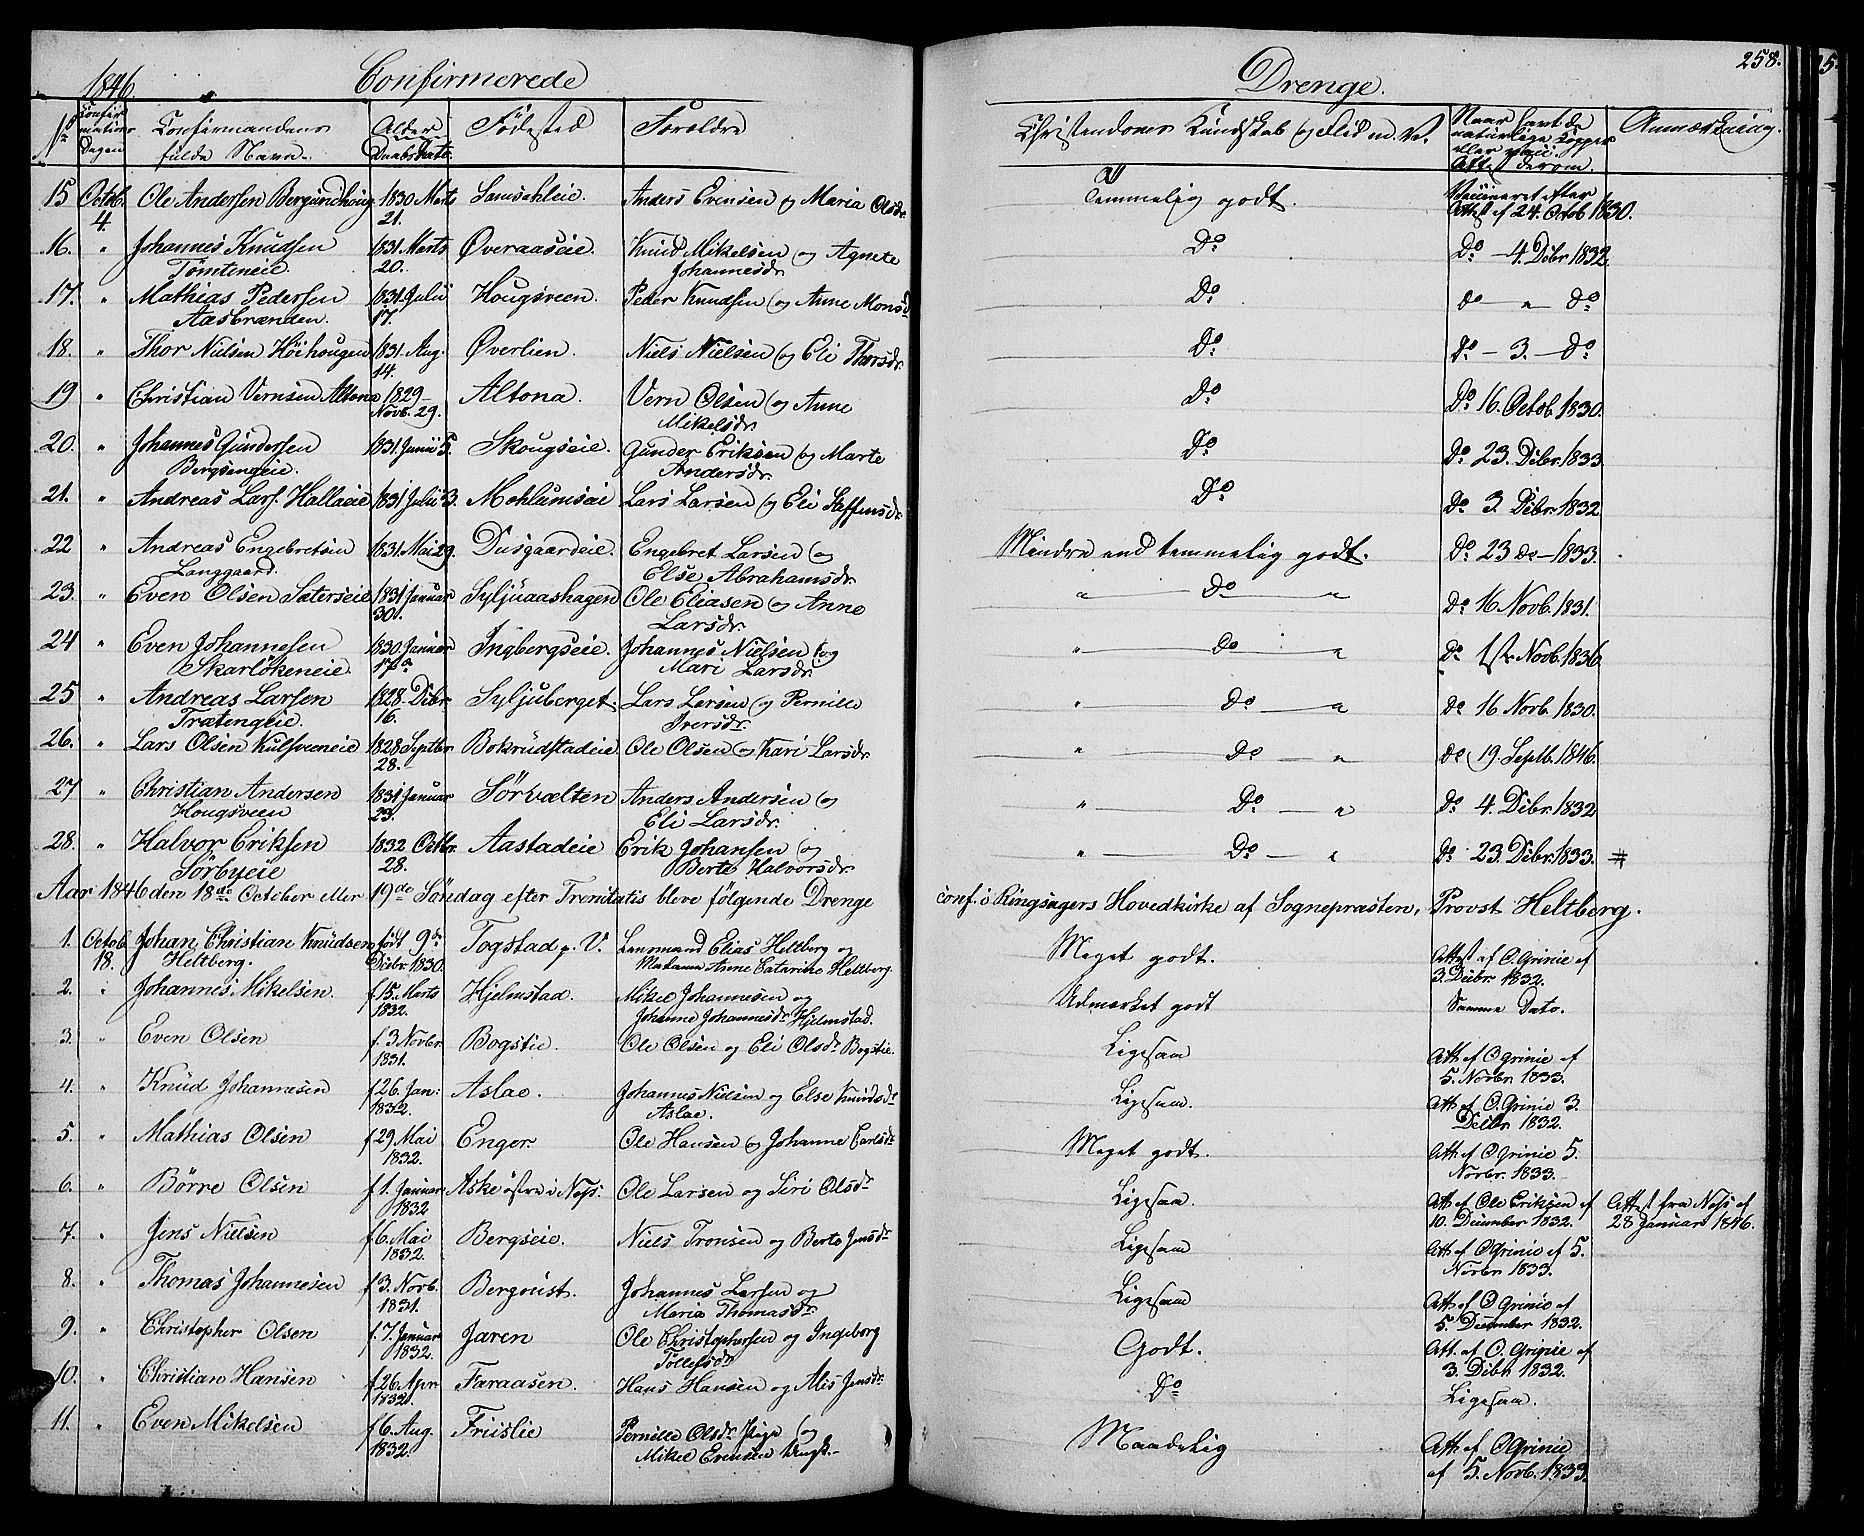 258.
1846. Confirmerede Drenge.
No Confirmations Dagen Confirmandens fulde Navn. Alder Daabsdato Födested Foreldre Christendoms Kundskab og Flid m. V. Naar havt de naturlige Kopper eller vacc. Attest derom. Anmærkning.
15 Octob. 4. Ole Andersen Bergundhoug 1830 Marts 21. Samsahleie. Anders Evensen og Maria Olsdr. Temmelig godt. Vaccineret efter Attest af 24. Octob 1830.
16. " Johannes Knudsen Tömteneie. 1831 Marts 20. Överaaseie. Knud Mikelsen og Agnete Johannesdr. Do Do - 4. Decbr 1832.
17. " Mathias Pedersen Aasbrænden. 1831 Julii 17. Hougsveen. Peder Knudsen og Anne Monsd. Do do — " — do
18. " Thor Nielsen Höihougen 1831. Aug. 14. Överlien. Niels Nielsen og Eli Thorsdr. Do Do - 3. - Do
19 " Christian Vernsen Altona 1829 - Novb. 29. Altona. Vern Olsen og Anne Mikelsdr. Do Do 16. Octob. 1830.
20. " Johannes Gundersen Bergsengeie. 1831 Junii 5. Skougseie. Gunder Eriksen og Marte Andersdr. Do Do 23. Decbr. 1833.
21. " Andreas Lars. Hallaeie 1831 Julii 3. Mohlumseie Lars Larsen og Eli Steffensdr. Do Do 3. Decbr. 1832
22 " Andreas Engebretsen Langgaard. 1831. Mai 29. Dusgaardeie. Engebret Larsen og Else Abrahamsdr. Mindre end temmelig godt. Do 23 do - 1833.
23. " Even Olsen Sæterseie 1831 Januar 30. Syljuaashagen Ole Eliasen og Anne Larsdr. " — Do — " Do 16 Novb. 1831.
24 " Even Johannesen Skarlökeneie. 1830. Januar 17. Ingbergseie. Johannes Nielsen og Mari Larsdr. " — Do — " Do 1ste Novb. 1836.
25 " Andreas Larsen Trætengeie. 1828. Decbr 16. Syljuberget. Lars Larsen og Pernille Iversdr. " Do — " Do 16 Novb. 1830.
26. " Lars Olsen Kulsveeneie 1828 Septbr 28. Bokrudstadeie. Ole Olsen og Kari Larsdr. " Do — " Do 19. Septb. 1846.
27 " Christian Andersen Hougsveen 1831 Januar 23. Sörvælten Anders Andersen og Eli Larsdr. " Do — " Do 4. Decbr. 1832
28. " Halvor Eriksen Sörbyeie 1832 Octbr. 28. Aastadeie Erik Johansen og Berte Halvorsdr. " — Do — " Do 23. Decbr. 1833. #
Aar 1846 den 18de October eller 19de Söndag efter Trenitatis bleve fölgende Drenge conf. i Ringsagers Hovedkirke af Sognepræsten, Provst Heltberg.
1. Octob 18. Johan Christian Knudsen Heltberg. född 9de Decbr 1830. Togstad p. V. Lensmand Elias Heltberg og Madame Anne Catarine Heltberg. Meget godt. Attest af O. Grinie af 3. Decbr. 1832.
2. " Johannes Mikelsen. f. 15. Marts 1832. Hjelmstad. Mikel Johannesen og Johanne Johannesdr Hjelmstad. Udmærket godt Samme Dato.
3. " Even Olsen f. 3 Novbr. 1831. Bogstie. Ole Olsen og Eli Olsdr Bogstie. Ligesaa Att. af O Grinie af 5. Novbr. 1833.
4. " Knud Johannesen f 26. Jan: 1832. Aslae. Johannes Nielsen og Else Knudsdr Aslae. Ligesaa. Att. af O. Grinie 3. Decbr. 1832.
5. " Mathias Olsen f 29 Mai 1832. Enger. Ole Hansen og Johanne Carlsdr Meget godt. Att. af O Grinie 5. Novbr. 1833.
6. " Börre Olsen f 1. Januar 1832 Aske östre i Næs. Ole Larsen og Siri Olsdr Ligesaa. Att. af Ole Eriksen af 10. December 1832. Attest fra Næs af 28 Januar 1846.
7. " Jens Nielsen f 6. Mai 1832. Bergseie. Niels Tronsen og Berte Jensdr Ligesaa Att. af O Grinie af 5. Novbr. 1833.
8. " Thomas Johannesen f 3. Novb. 1831. Bergqvist. Johannes Larsen og Maria Thomasdr. Ligesaa Att. af O Grinie af 5. December 1832.
9. " Christopher Olsen f. 7. Januar 1832. Jaren Ole Christophersen og Ingeborg Tollefsdr Godt. Att. af O. Grinie af 3. Decbr. 1832.
10. " Christian Hansen f 26. Apr 1832. Faraasen. Hans Hansen og Alis Jensdr Do Ligesaa.
11. " Even Mikelsen f 6. Aug. 1832. Friislie Pernille Olsdr Pige og Mikel Evensen Ungk. Maadelig Att. af O Grinie af 5. Novb. 1833.